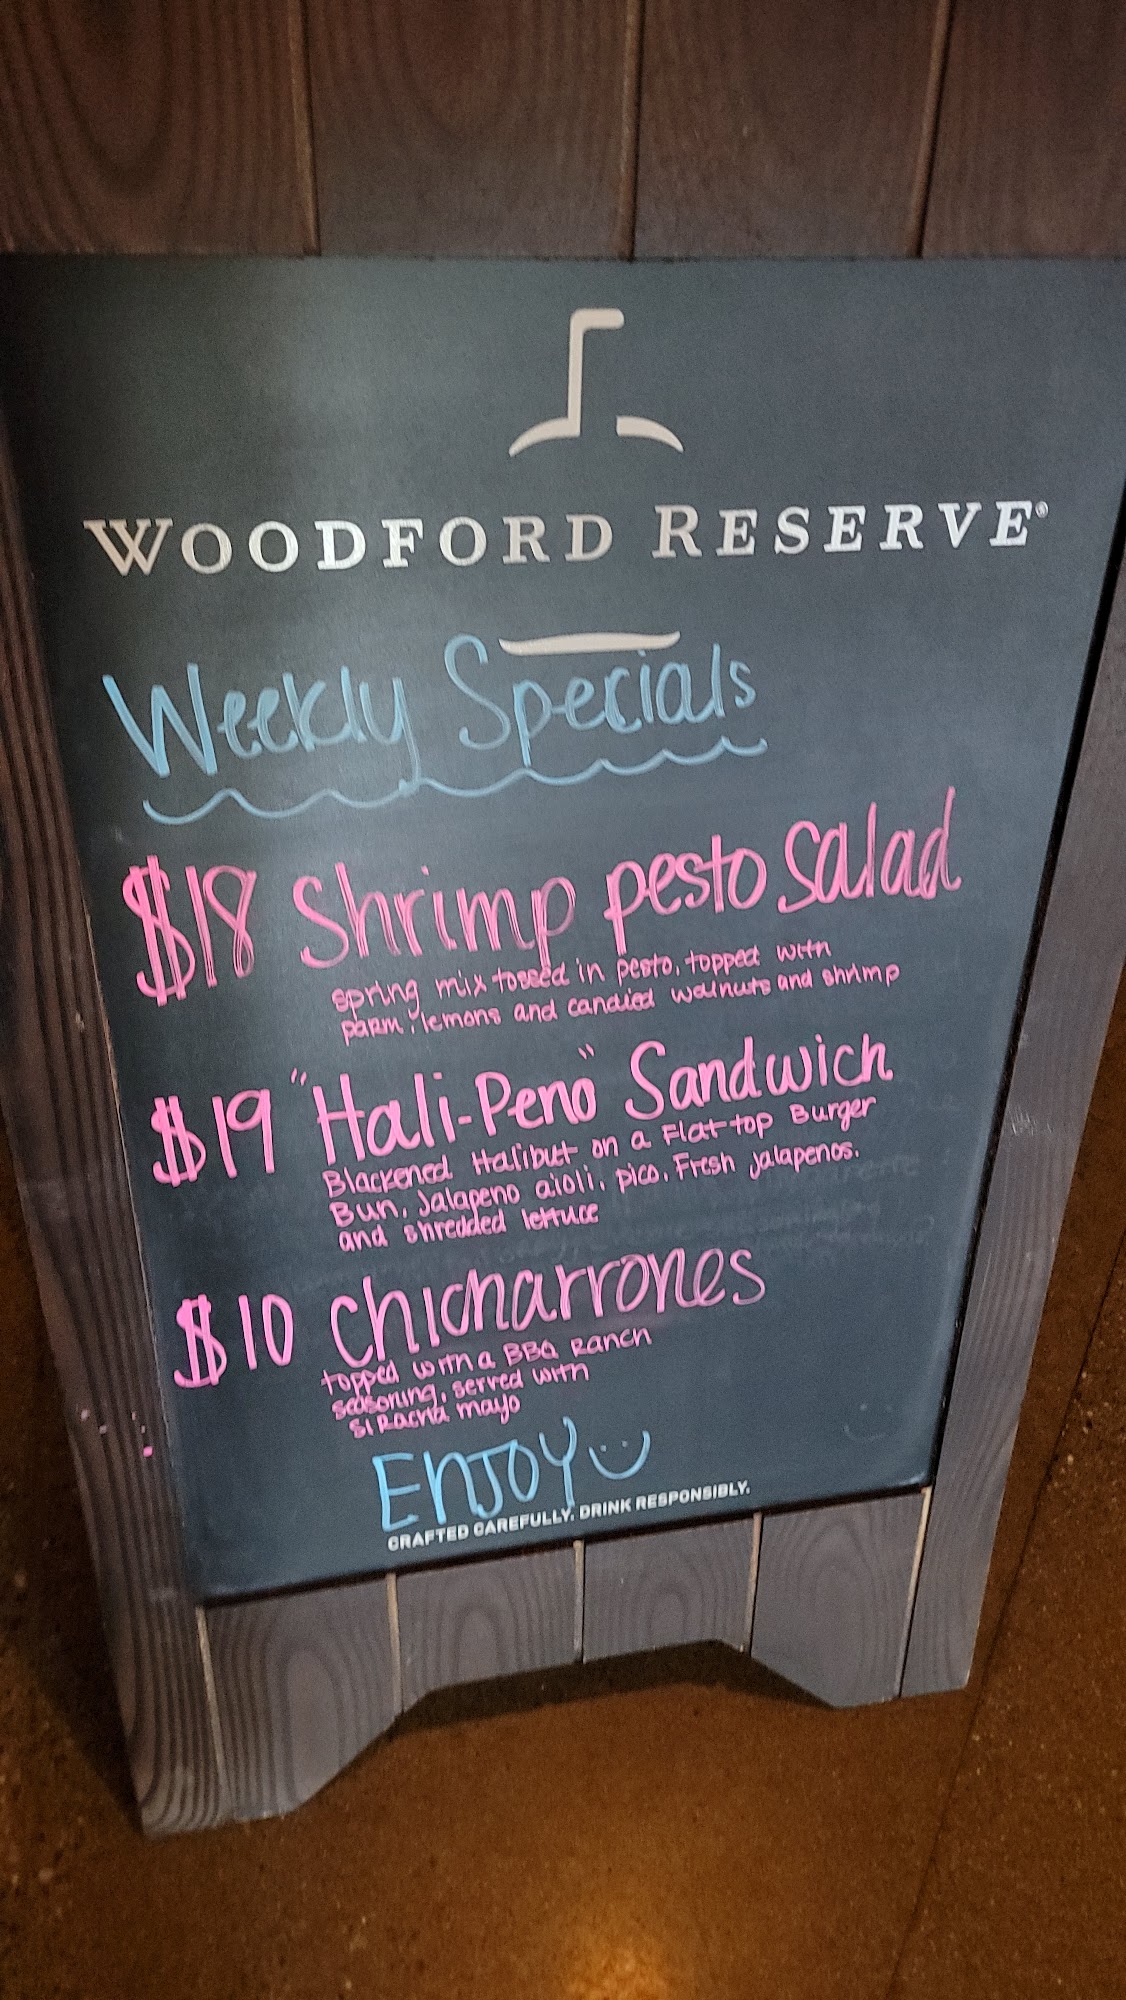 WOODFORD RESERVE®
Weekly Specials
$18 Shrimp pesto salad
spring mix tossed in pesto, topped with
parm, lemons and candied walnuts and shrimp
$19 "Hali-Peno" Sandwich
Blackened Halibut on a Flat top Burger
Bun, Jalapeno aioli, pico, Fresh jalapenos,
and shredded lettuce
$10 chicharrones
topped with a BBQ Ranch
seasoning, served with
siracha mayo
ENJOY
CRAFTED CAREFULLY. DRINK RESPONSIBLY.